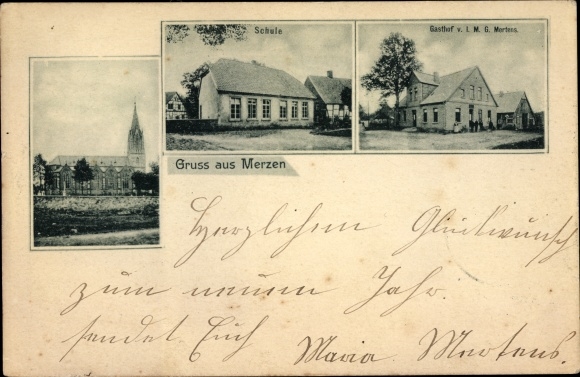 Schule
Gasthof v. I. M. G. Mertens.
Gruss aus Merzen
Herzlichem Glückwunsch
zum neuem Jahr.
sendet Euch Maria Mertens.